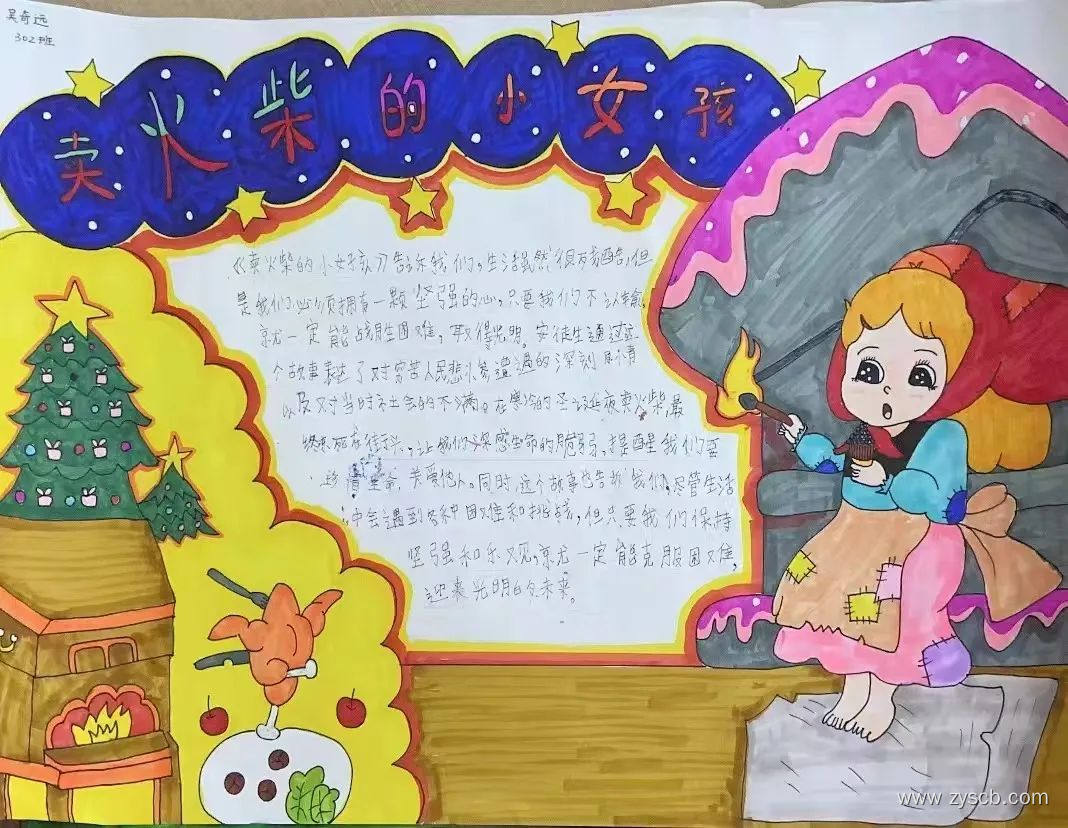 吴奇远
302班
卖火柴的小女孩
《卖火柴的小女孩》告诉我们,生活虽然很残酷,但
是我们必须拥有一颗坚强的心,只要我们不认输,
就一定能战胜困难,取得光明。安徒生通过这
个故事表达了对穷苦人民悲惨遭遇的深刻同情
以及对当时社会的不满。在寒冷的圣诞夜卖火柴,最
终死在街头,让我们深感生命的脆弱,提醒我们要
珍惜生命,关爱他人。同时,这个故事也告诉我们,尽管生活
中会遇到各种困难和挑战,但只要我们保持
坚强和乐观,就一定能克服困难,
迎来光明的未来。
www.zyscb.com